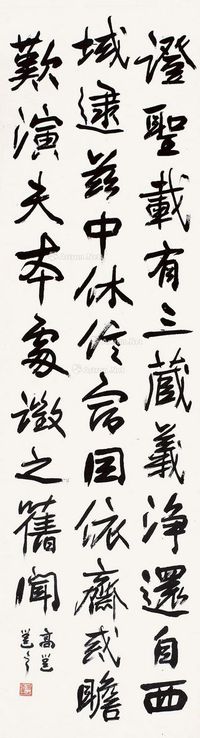 證聖載有三藏義淨還自西
域逮茲中休信宿因依齋戒瞻
歎演夫本處徵之舊聞
高邕
邕之